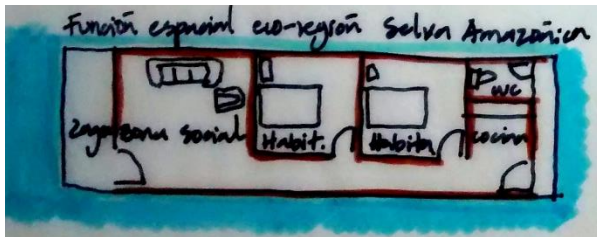 Función espacial eco-región Selva Amazónica
WC
Zaguan zona social Habit. Habita cocina